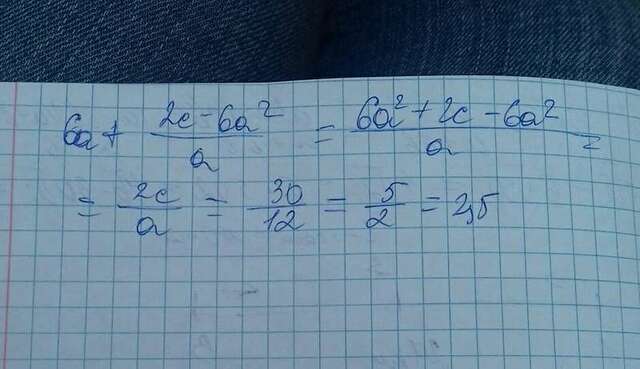 6a + \frac{2c - 6a^2}{a} = \frac{6a^2 + 2c - 6a^2}{a} =
= \frac{2c}{a} = \frac{30}{12} = \frac{5}{2} = 2,5